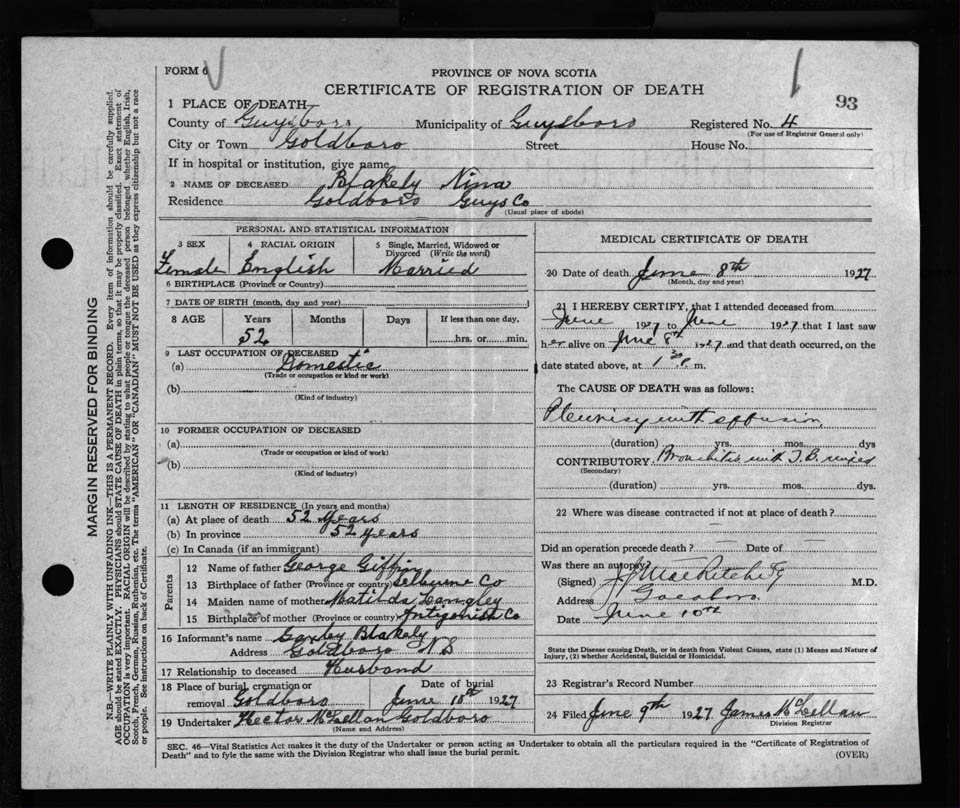 FORM 6
PROVINCE OF NOVA SCOTIA
CERTIFICATE OF REGISTRATION OF DEATH
93
1 PLACE OF DEATH
County of Guysboro Municipality of Guysboro Registered No. 4
(For use of Registrar General only)
City or Town Goldboro Street House No.
If in hospital or institution, give name
2 NAME OF DECEASED Blakely Nina
Residence Goldboro Guys Co
(Usual place of abode)
PERSONAL AND STATISTICAL INFORMATION
3 SEX 4 RACIAL ORIGIN 5 Single, Married, Widowed or Divorced (Write the word)
Female English Married
6 BIRTHPLACE (Province or Country)
7 DATE OF BIRTH (month, day and year)
8 AGE Years Months Days If less than one day,
52 hrs. or min.
9 LAST OCCUPATION OF DECEASED
(a) Domestic
(Trade or occupation or kind or work)
(b)
(Kind of industry)
10 FORMER OCCUPATION OF DECEASED
(a)
(Trade or occupation or kind or work)
(b)
(Kind of industry)
11 LENGTH OF RESIDENCE (In years and months)
(a) At place of death 52 Years
(b) In province 52 years
(c) In Canada (if an immigrant)
Parents
12 Name of father George Giffin
13 Birthplace of father (Province or country) Co
14 Maiden name of mother Matilda Langley
15 Birthplace of mother (Province or country) Antigonish Co
16 Informant's name Blakely
Address Goldboro N S
17 Relationship to deceased Husband
18 Place of burial, cremation or removal Goldboro Date of burial June 10th 1927
19 Undertaker Hector McLellan Goldboro
(Name and Address)
MEDICAL CERTIFICATE OF DEATH
20 Date of death June 8th 1927
(Month, day and year)
21 I HEREBY CERTIFY, that I attended deceased from
June 1927 to June 1927 that I last saw
her alive on June 8th 1927 and that death occurred, on the
date stated above, at 1 30 P. m.
The CAUSE OF DEATH was as follows:
Pleurisy with effusion
(duration) yrs. mos. dys
CONTRIBUTORY Bronchitis with T.B.
(Secondary)
(duration) yrs. mos. dys.
22 Where was disease contracted if not at place of death?
Did an operation precede death? Date of
Was there an autopsy?
(Signed) M.D.
Address Goldboro
Date June 10th
State the Disease causing Death, or in death from Violent Causes, state (1) Means and Nature of
Injury, (2) whether Accidental, Suicidal or Homicidal.
23 Registrar's Record Number
24 Filed June 9th 1927 James McLellan
Division Registrar
SEC. 46—Vital Statistics Act makes it the duty of the Undertaker or person acting as Undertaker to obtain all the particulars required in the "Certificate of Registration of
Death" and to fyle the same with the Division Registrar who shall issue the burial permit.
(OVER)
MARGIN RESERVED FOR BINDING
N.B.—WRITE PLAINLY WITH UNFADING INK—THIS IS A PERMANENT RECORD. Every item of information should be carefully supplied.
AGE should be stated EXACTLY. PHYSICIANS should STATE CAUSE OF DEATH in plain terms, so that it may be properly classified. Exact statement of
OCCUPATION is very important. RACIAL ORIGIN will be described by stating to what people or tongue the deceased person belonged, whether English, Irish,
Scotch, French, German, Russian, Ruthenian, etc. The terms "AMERICAN" OR "CANADIAN" MUST NOT BE USED as they express citizenship but not a race
or people. See instructions on back of Certificate.